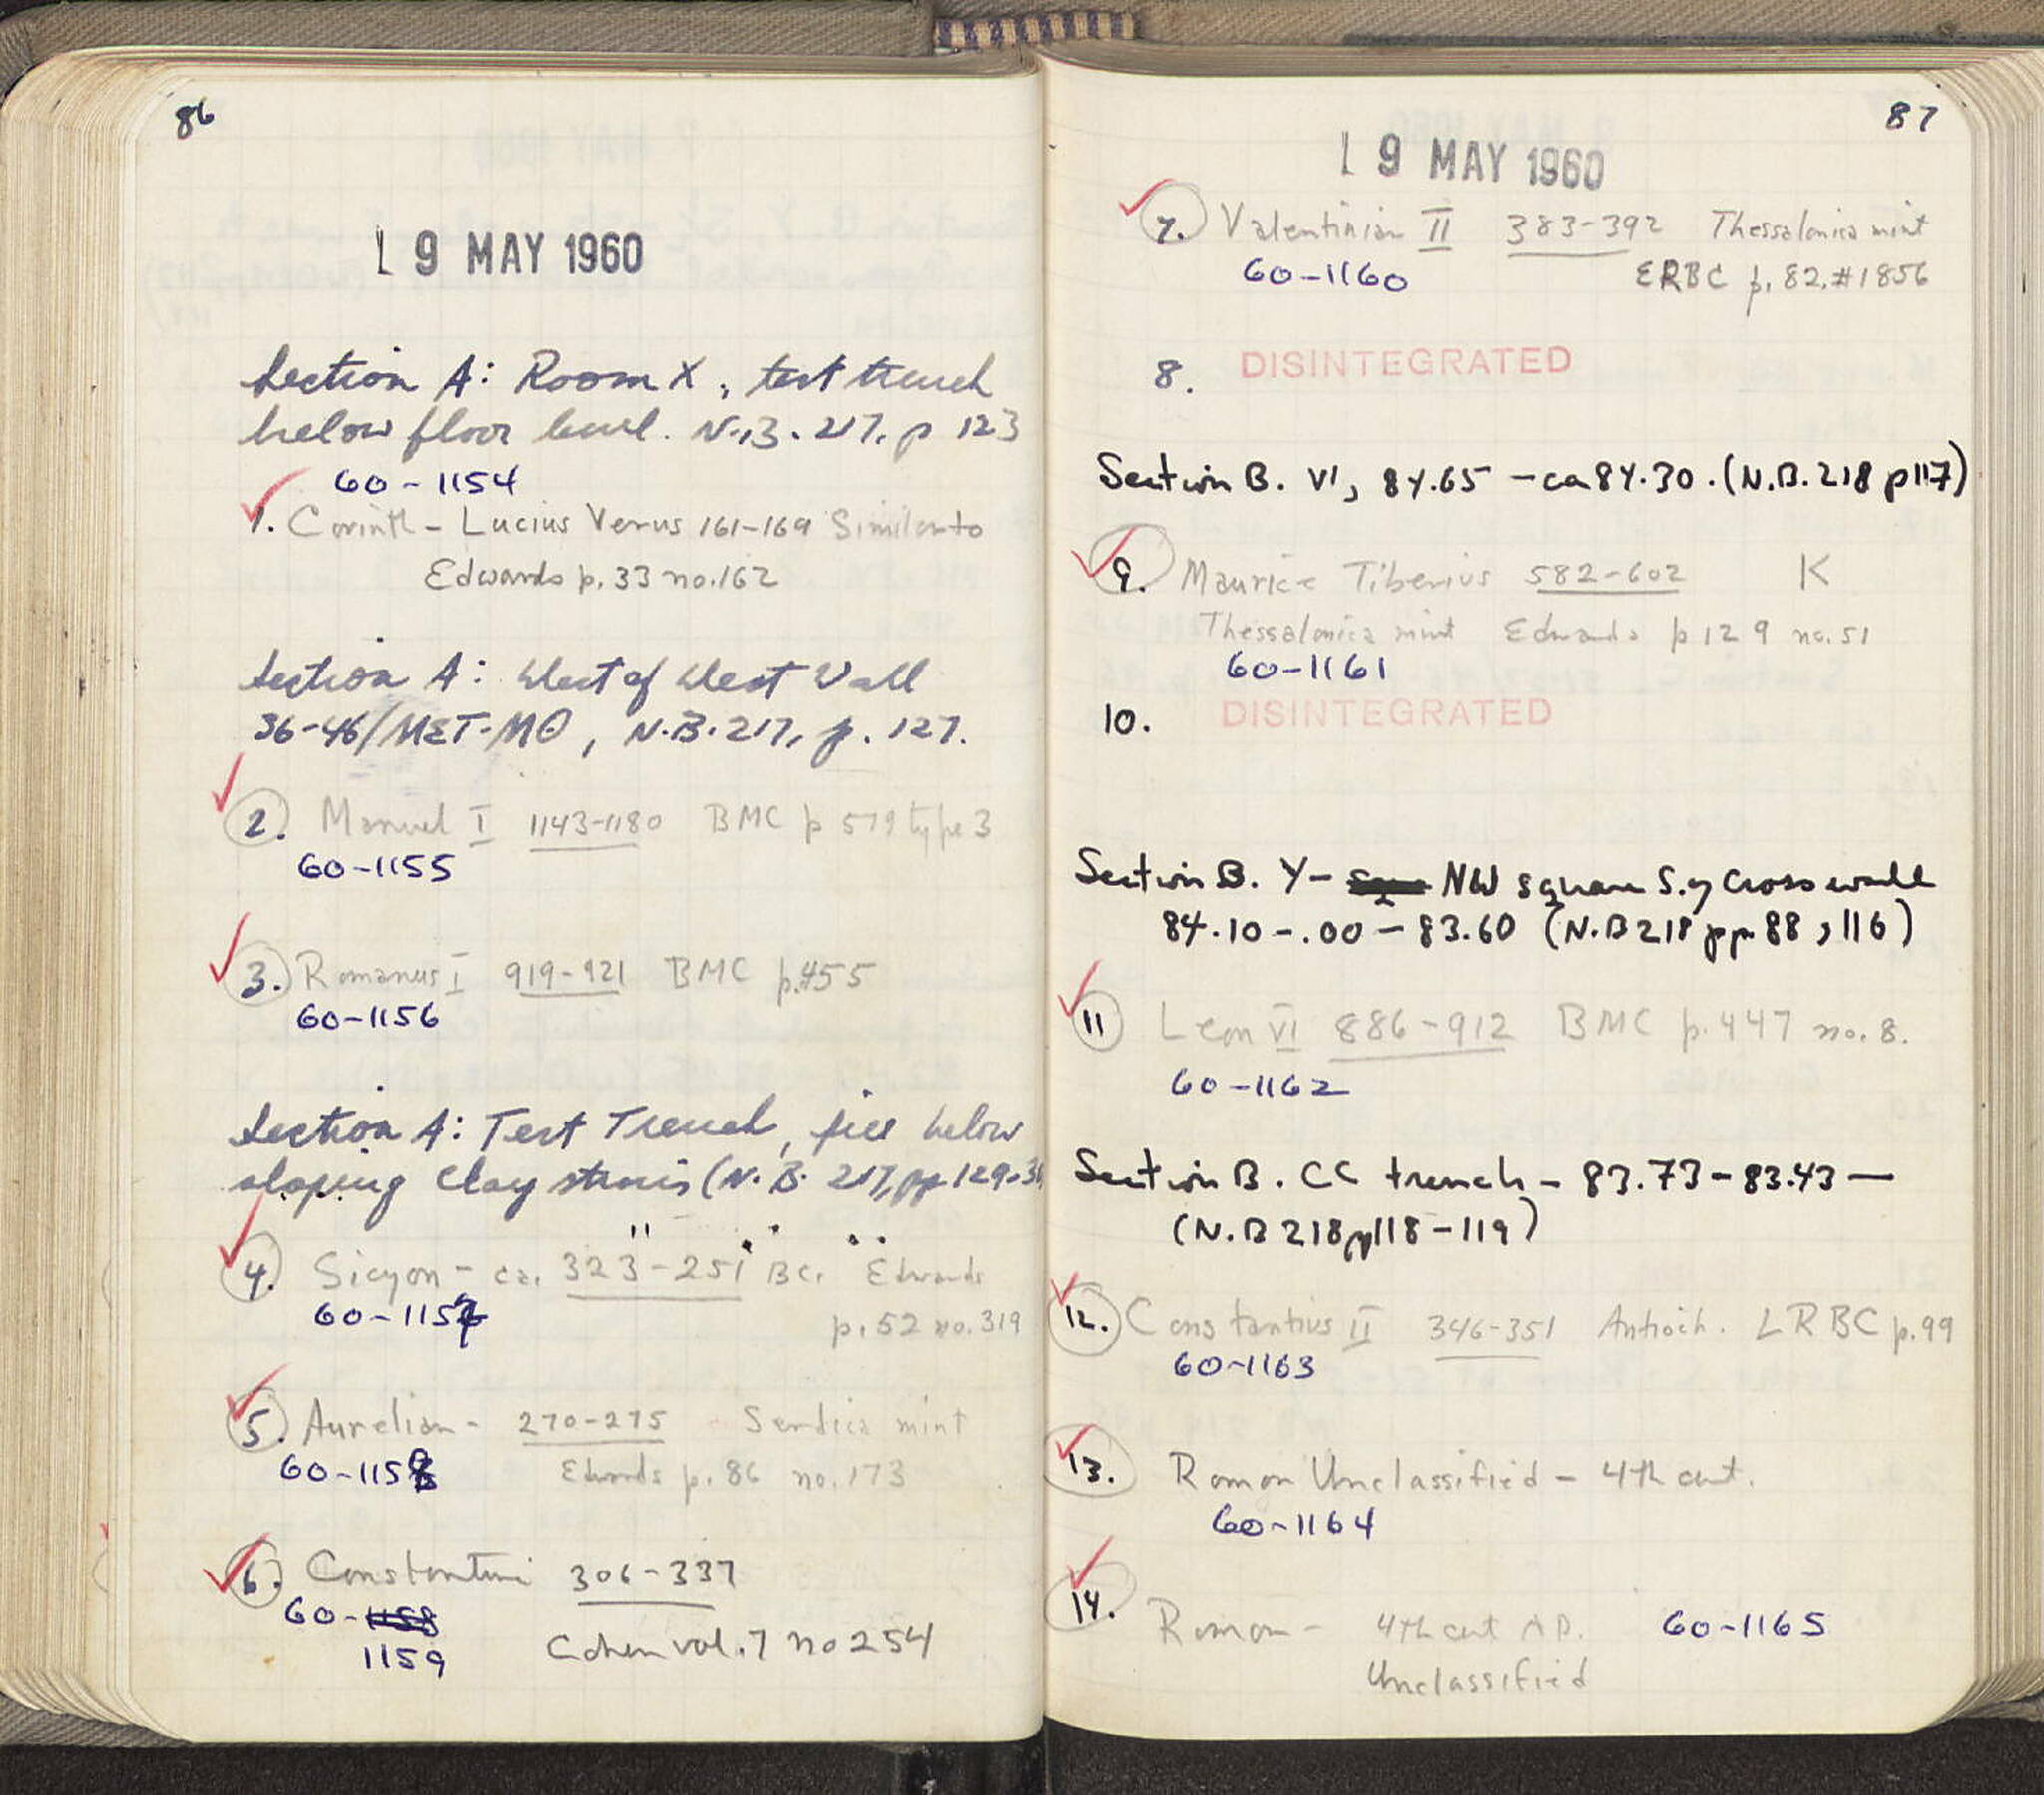 86
L 9 MAY 1960
Section A: Room X, test trench
below floor level. N.B. 217, p 123
60-1154
1. Corinth - Lucius Verus 161-169 Similar to
Edwards p. 33 no. 162
Section A: West of West Wall
36-46/MΣT-MΘ, N.B. 217, p. 127.
2. Manuel I 1143-1180 BMC p 579 type 3
60-1155
3. Romanus I 919-921 BMC p. 455
60-1156
Section A: Test Trench, fill below
sloping clay strosis (N.B. 217, pp 129-
4. Sicyon - ca. 323-251 BC. Edwards
60-1157 p. 52 no. 319
5. Aurelian - 270-275 Serdica mint
60-1158 Edwards p. 86 no. 173
6. Constantine 306-337
60-1158
1159 Cohen vol. 7 no 254
87
L 9 MAY 1960
7. Valentinian II 383-392 Thessalonica mint
60-1160 ERBC p. 82. #1856
8. DISINTEGRATED
Section B. VI, 84.65 - ca 84.30. (N.B. 218 p 117)
9. Maurice Tiberius 582-602 K
Thessalonica mint Edwards p 129 no. 51
60-1161
10. DISINTEGRATED
Section B. Y- NW square S. of Cross wall
84.10-.00-83.60 (N.B 218 pp 88, 116)
11 Leon VI 886-912 BMC p. 447 no. 8.
60-1162
Section B. CC trench - 83.73-83.43 —
(N.B 218 pp 118-119)
12. Constantius II 346-351 Antioch. LRBC p. 99
60-1163
13. Roman Unclassified - 4th cent.
60-1164
14. Roman - 4th cent AD. 60-1165
Unclassified